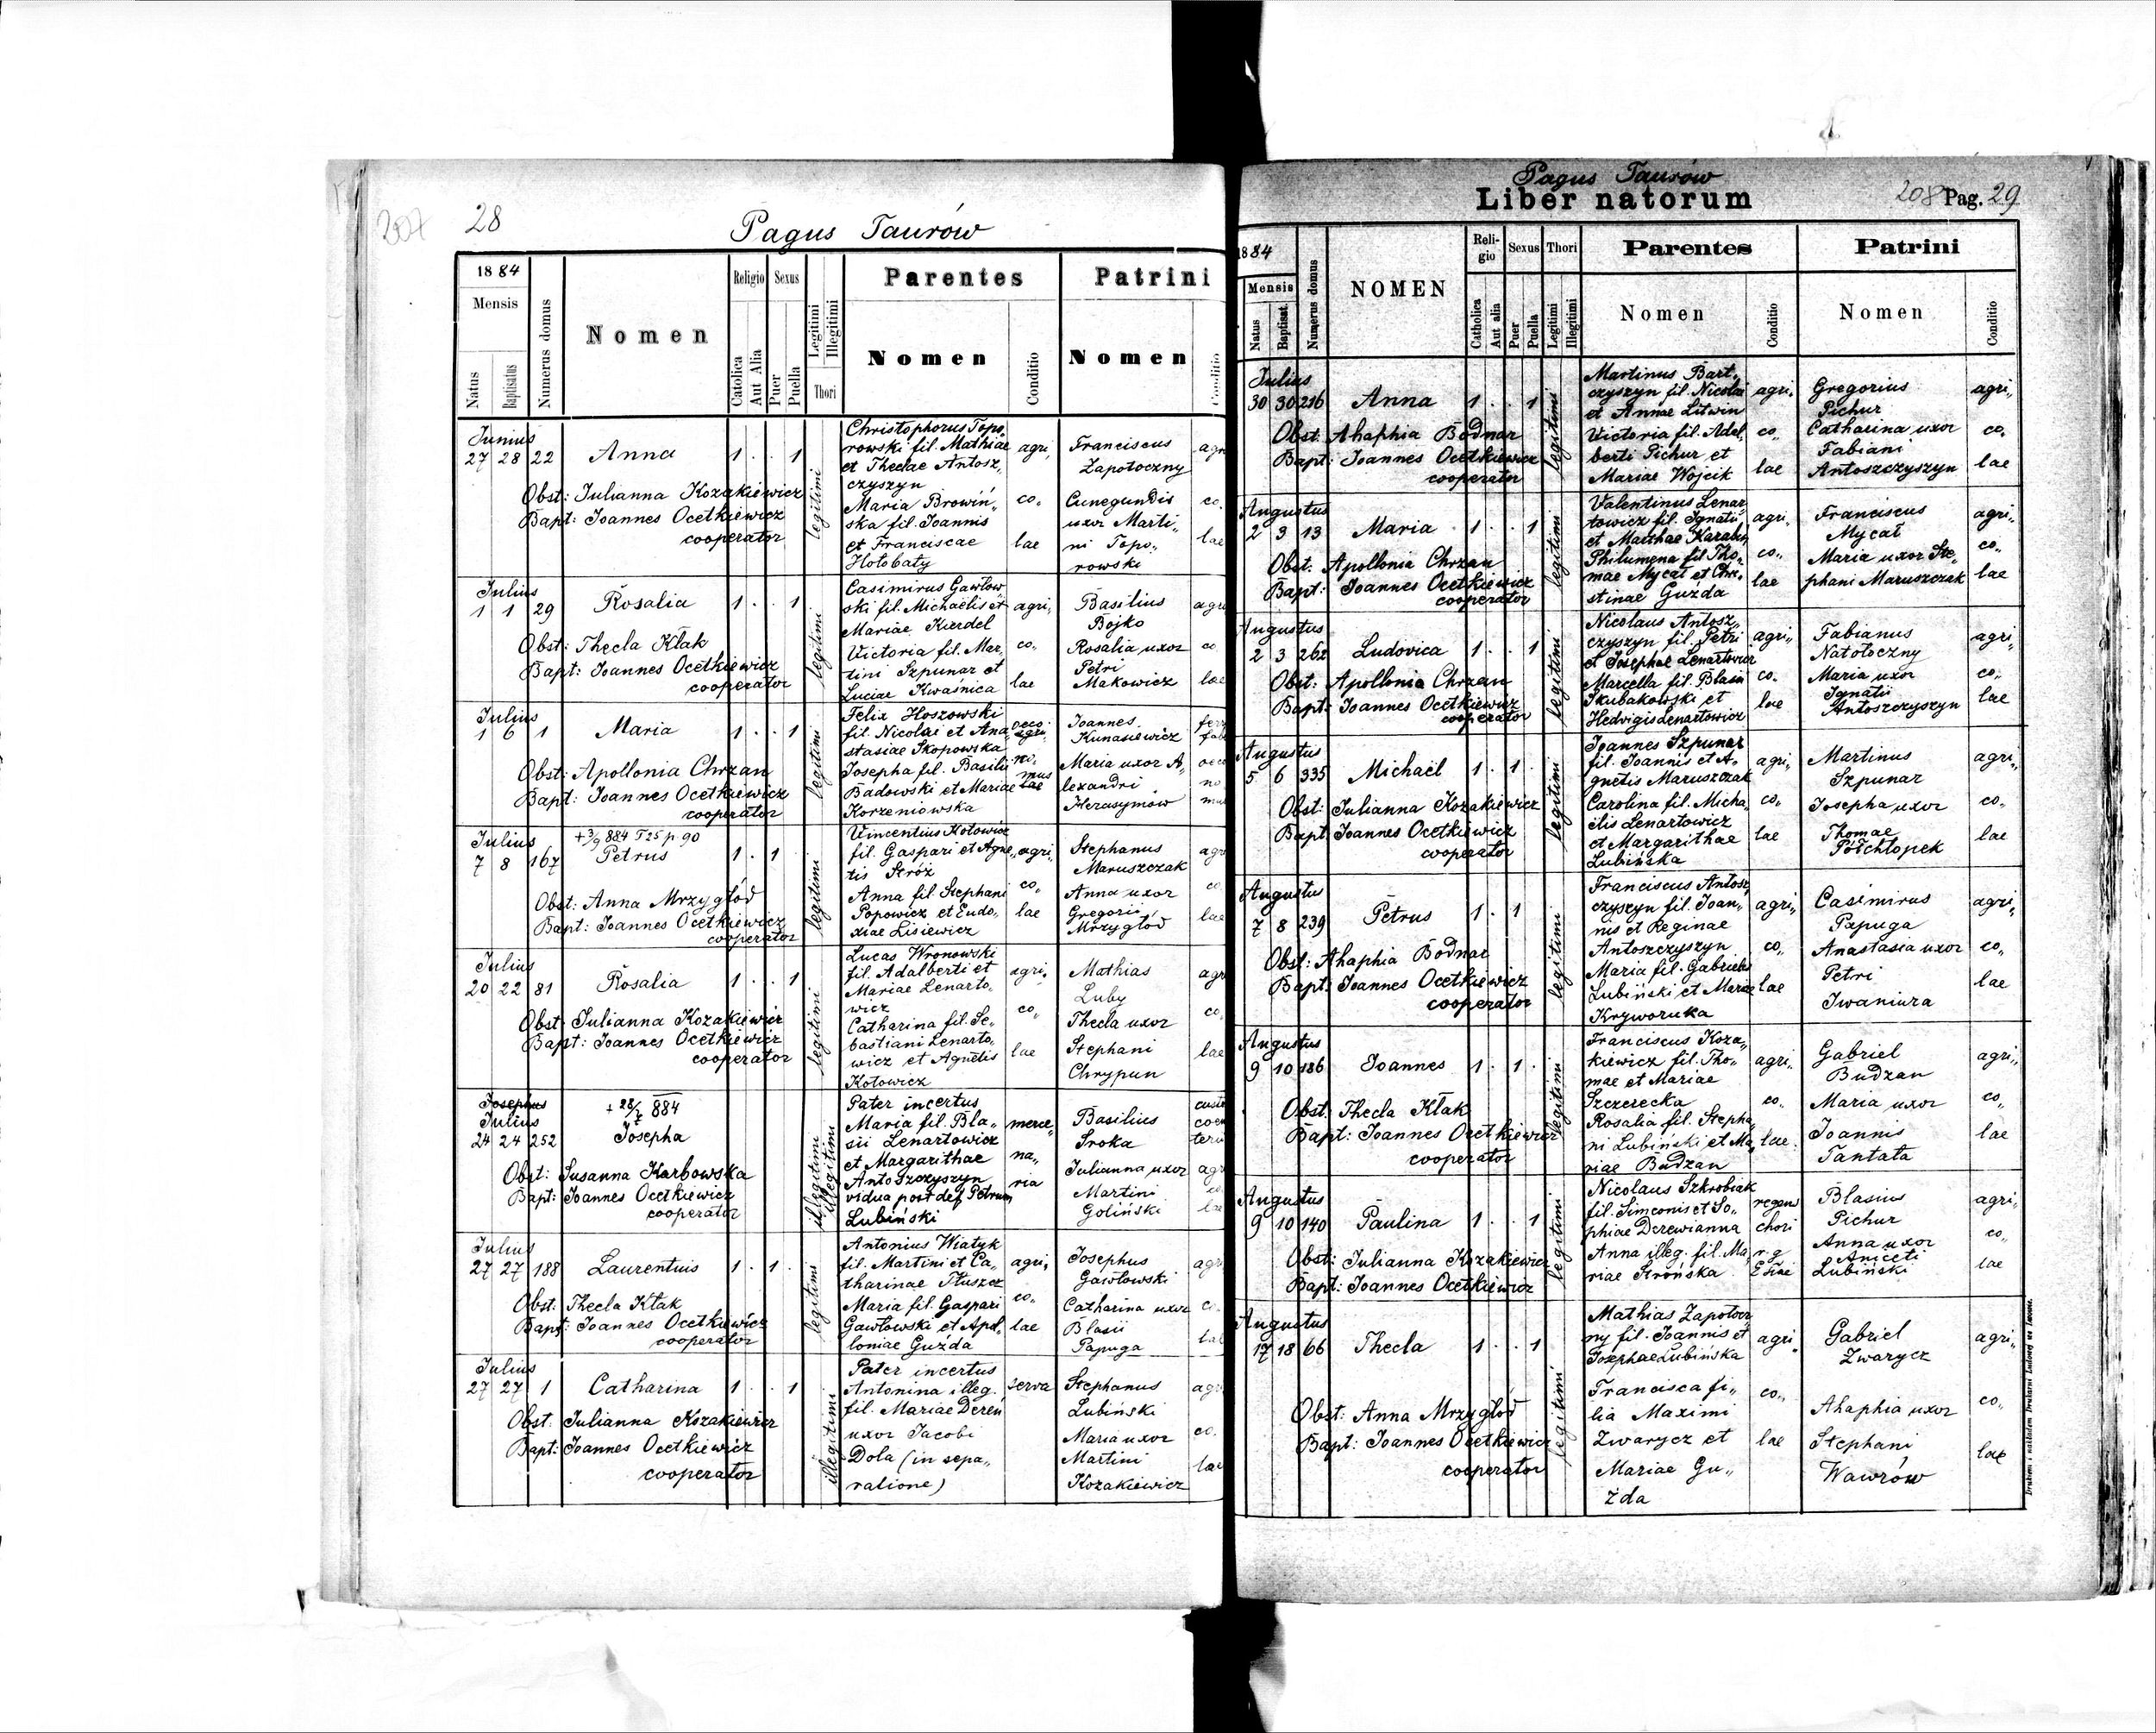 207
28
Pagus Taurów
1884
Mensis
Natus
Baptisatus
Numerus domus
Nomen
Religio
Catolica
Aut Alia
Sexus
Puer
Puella
Legitimi
Illegitimi
Thori
Parentes
Nomen
Conditio
Patrini
Nomen
Conditio
Junius
27 28 22 Anna 1 . . 1
Obst: Julianna Kozakiewicz
Bapt: Joannes Ocetkiewicz
cooperator
legitimi
Christophorus Topo,
rowski fil. Mathiae
et Theclae Antosz,
czyszyn
Maria Browiń,
ska fil. Joannis
et Franciscae
Hołobaty
agri,
co,
lae
Franciscus
Zapotoczny
Cunegundis
uxor Marti,
ni Topo,
rowski
agri
co,
lae
Julius
1 1 29 Rosalia 1 . . 1
Obst: Thecla Kłak
Bapt: Joannes Ocetkiewicz
cooperator
legitimi
Casimirus Gawłow,
ski fil. Michaëlis et
Mariae Kardel
Victoria fil. Mar,
tini Szpunar et
Luciae Kwaśnica
agri,
co,
lae
Basilius
Bojko
Rosalia uxor
Petri
Makowicz
agri
co
lae
Julius
1 6 1 Maria 1 . . 1
Obst: Apollonia Chrzan
Bapt: Joannes Ocetkiewicz
cooperator
legitimi
Felix Hoszowski
fil. Nicolai et Ana,
stasiae Skopowska
Josepha fil. Basilii
Badowski et Mariae
Korzeniowska
oeco,
no,
mus
Joannes
Kunasiewicz
Maria uxor A,
lexandri
Herasymow
Julius
+ 3/9 884 T25 p. 90
7 8 167 Petrus 1 . 1
Obst: Anna Mrzygłód
Bapt: Joannes Ocetkiewicz
cooperator
legitimi
Vincentius Kotowicz
fil. Gaspari et Agne,
tis Stróż
Anna fil. Stephani
Popowicz et Eudo,
xiae Lisiewicz
agri,
co,
lae
Stephanus
Maruszczak
Anna uxor
Gregorii
Mrzygłód
agri
co,
lae
Julius
20 22 81 Rosalia 1 . . 1
Obst: Julianna Kozakiewicz
Bapt: Joannes Ocetkiewicz
cooperator
legitimi
Lucas Wronowski
fil. Adalberti et
Mariae Lenarto,
wicz
Catharina fil. Se,
bastiani Lenarto,
wicz et Agnetis
Kotowicz
agri,
co,
lae
Mathias
Luby
Thecla uxor
Stephani
Chrypun
agr
co,
lae
Josephus
Julius
+ 28/7 884
24 24 252 Josepha
Obst: Susanna Karbowska
Bapt: Joannes Ocetkiewicz
cooperator
illegitimi
illegitimi
Pater incertus
Maria fil. Bla,
sii Lenartowicz
et Margarithae
Antoszczyszyn
vidua post def. Petrum
Lubiński
merce,
na,
ria
Basilius
Sroka
Julianna uxor
Martini
Goliński
Julius
27 27 188 Laurentius 1 . 1 .
Obst: Thecla Kłak
Bapt: Joannes Ocetkiewicz
cooperator
legitimi
Antonius Wiatyk
fil. Martini et Ca,
tharinae Tłuszcz
Maria fil. Gaspari
Gawłowski et Apol,
loniae Guzda
agri,
co,
lae
Josephus
Gawłowski
Catharina uxor
Blasii
Papuga
agri
co
lae
Julius
27 27 1 Catharina 1 . . 1
Obst: Julianna Kozakiewicz
Bapt: Joannes Ocetkiewicz
cooperator
illegitimi
Pater incertus
Antonina illeg.
fil. Mariae Dereń
uxor Jacobi
Dola (in sepa,
ratione)
serva
Stephanus
Lubiński
Maria uxor
Martini
Kozakiewicz
agri
co.
lae
Pagus Taurów
Liber natorum
208 Pag. 29
1884
Mensis
Natus
Baptisat.
Numerus domus
NOMEN
Religio
Catholica
Aut alia
Sexus
Puer
Puella
Thori
Legitimi
Illegitimi
Parentes
Nomen
Conditio
Patrini
Nomen
Conditio
Julius
30 30 216 Anna 1 . . 1
Obst: Ahaphia Bodnar
Bapt: Joannes Ocetkiewicz
cooperator
legitimi
Martinus Bart,
czyszyn fil. Nicolai
et Annae Litwin
Victoria fil. Adal,
berti Pichur et
Mariae Wojcik
agri,
co,
lae
Gregorius
Pichur
Catharina uxor
Fabiani
Antoszczyszyn
agri,
co,
lae
Augustus
2 3 13 Maria 1 . . 1
Obst: Apollonia Chrzan
Bapt: Joannes Ocetkiewicz
cooperator
legitimi
Valentinus Lenar,
towicz fil. Ignatii
et Marthae Karabin
Philumena fil. Tho,
mae Mycał et Chri,
stinae Guzda
agri,
co,
lae
Franciscus
Mycał
Maria uxor Ste,
phani Maruszczak
agri,
co,
lae
Augustus
2 3 262 Ludovica 1 . . 1
Obst: Apollonia Chrzan
Bapt: Joannes Ocetkiewicz
cooperator
legitimi
Nicolaus Antosz,
czyszyn fil. Petri
et Josephae Lenartowicz
Marcella fil. Blasii
Skubakowski et
Hedvigis Lenartowicz
agri,
co,
lae
Fabianus
Natołoczny
Maria uxor
Ignatii
Antoszczyszyn
agri,
co,
lae
Augustus
5 6 335 Michaël 1 . 1 .
Obst: Julianna Kozakiewicz
Bapt: Joannes Ocetkiewicz
cooperator
legitimi
Joannes Szpunar
fil. Joannis et A,
gnetis Maruszczak
Carolina fil. Micha,
ëlis Lenartowicz
et Margarithae
Lubińska
agri,
co,
lae
Martinus
Szpunar
Josepha uxor
Thomae
Półchłopek
agri,
co,
lae
Augustus
7 8 239 Petrus 1 . 1
Obst: Ahaphia Bodnar
Bapt: Joannes Ocetkiewicz
cooperator
legitimi
Franciscus Antosz,
czyszyn fil. Joan,
nis et Reginae
Antoszczyszyn
Maria fil. Gabrielis
Lubiński et Mariae
Kryworuka
agri,
co,
lae
Casimirus
Papuga
Anastasia uxor
Petri
Iwaniura
agri,
co,
lae
Augustus
9 10 186 Joannes 1 . 1 .
Obst: Thecla Kłak
Bapt: Joannes Ocetkiewicz
cooperator
legitimi
Franciscus Koza,
kiewicz fil. Tho,
mae et Mariae
Szczerecka
Rosalia fil. Stepha,
ni Lubiński et Ma,
riae Budzan
agri,
co,
lae
Gabriel
Budzan
Maria uxor
Joannis
Tantata
agri,
co,
lae
Augustus
9 10 140 Paulina 1 . . 1
Obst: Julianna Kozakiewicz
Bapt: Joannes Ocetkiewicz
legitimi
Nicolaus Szkrobiak
fil. Simeonis et So,
phiae Derewianna
Anna illeg. fil. Ma,
riae Strońska
regens
chori
r. g.
Blasius
Pichur
Anna uxor
Aniceti
Lubiński
agri,
co,
lae
Augustus
17 18 66 Thecla 1 . . 1
Obst: Anna Mrzygłod
Bapt: Joannes Ocetkiewicz
cooperator
legitimi
Mathias Zapotocz
ny fil. Joannis et
Josephae Lubińska
Francisca fi,
lia Maximi
Zwarycz et
Mariae Gu,
zda
agri,
co,
lae
Gabriel
Zwarycz
Ahaphia uxor
Stephani
Wawrów
agri,
co,
lae
Drukiem i nakładem Drukarni Ludowej we Lwowie.